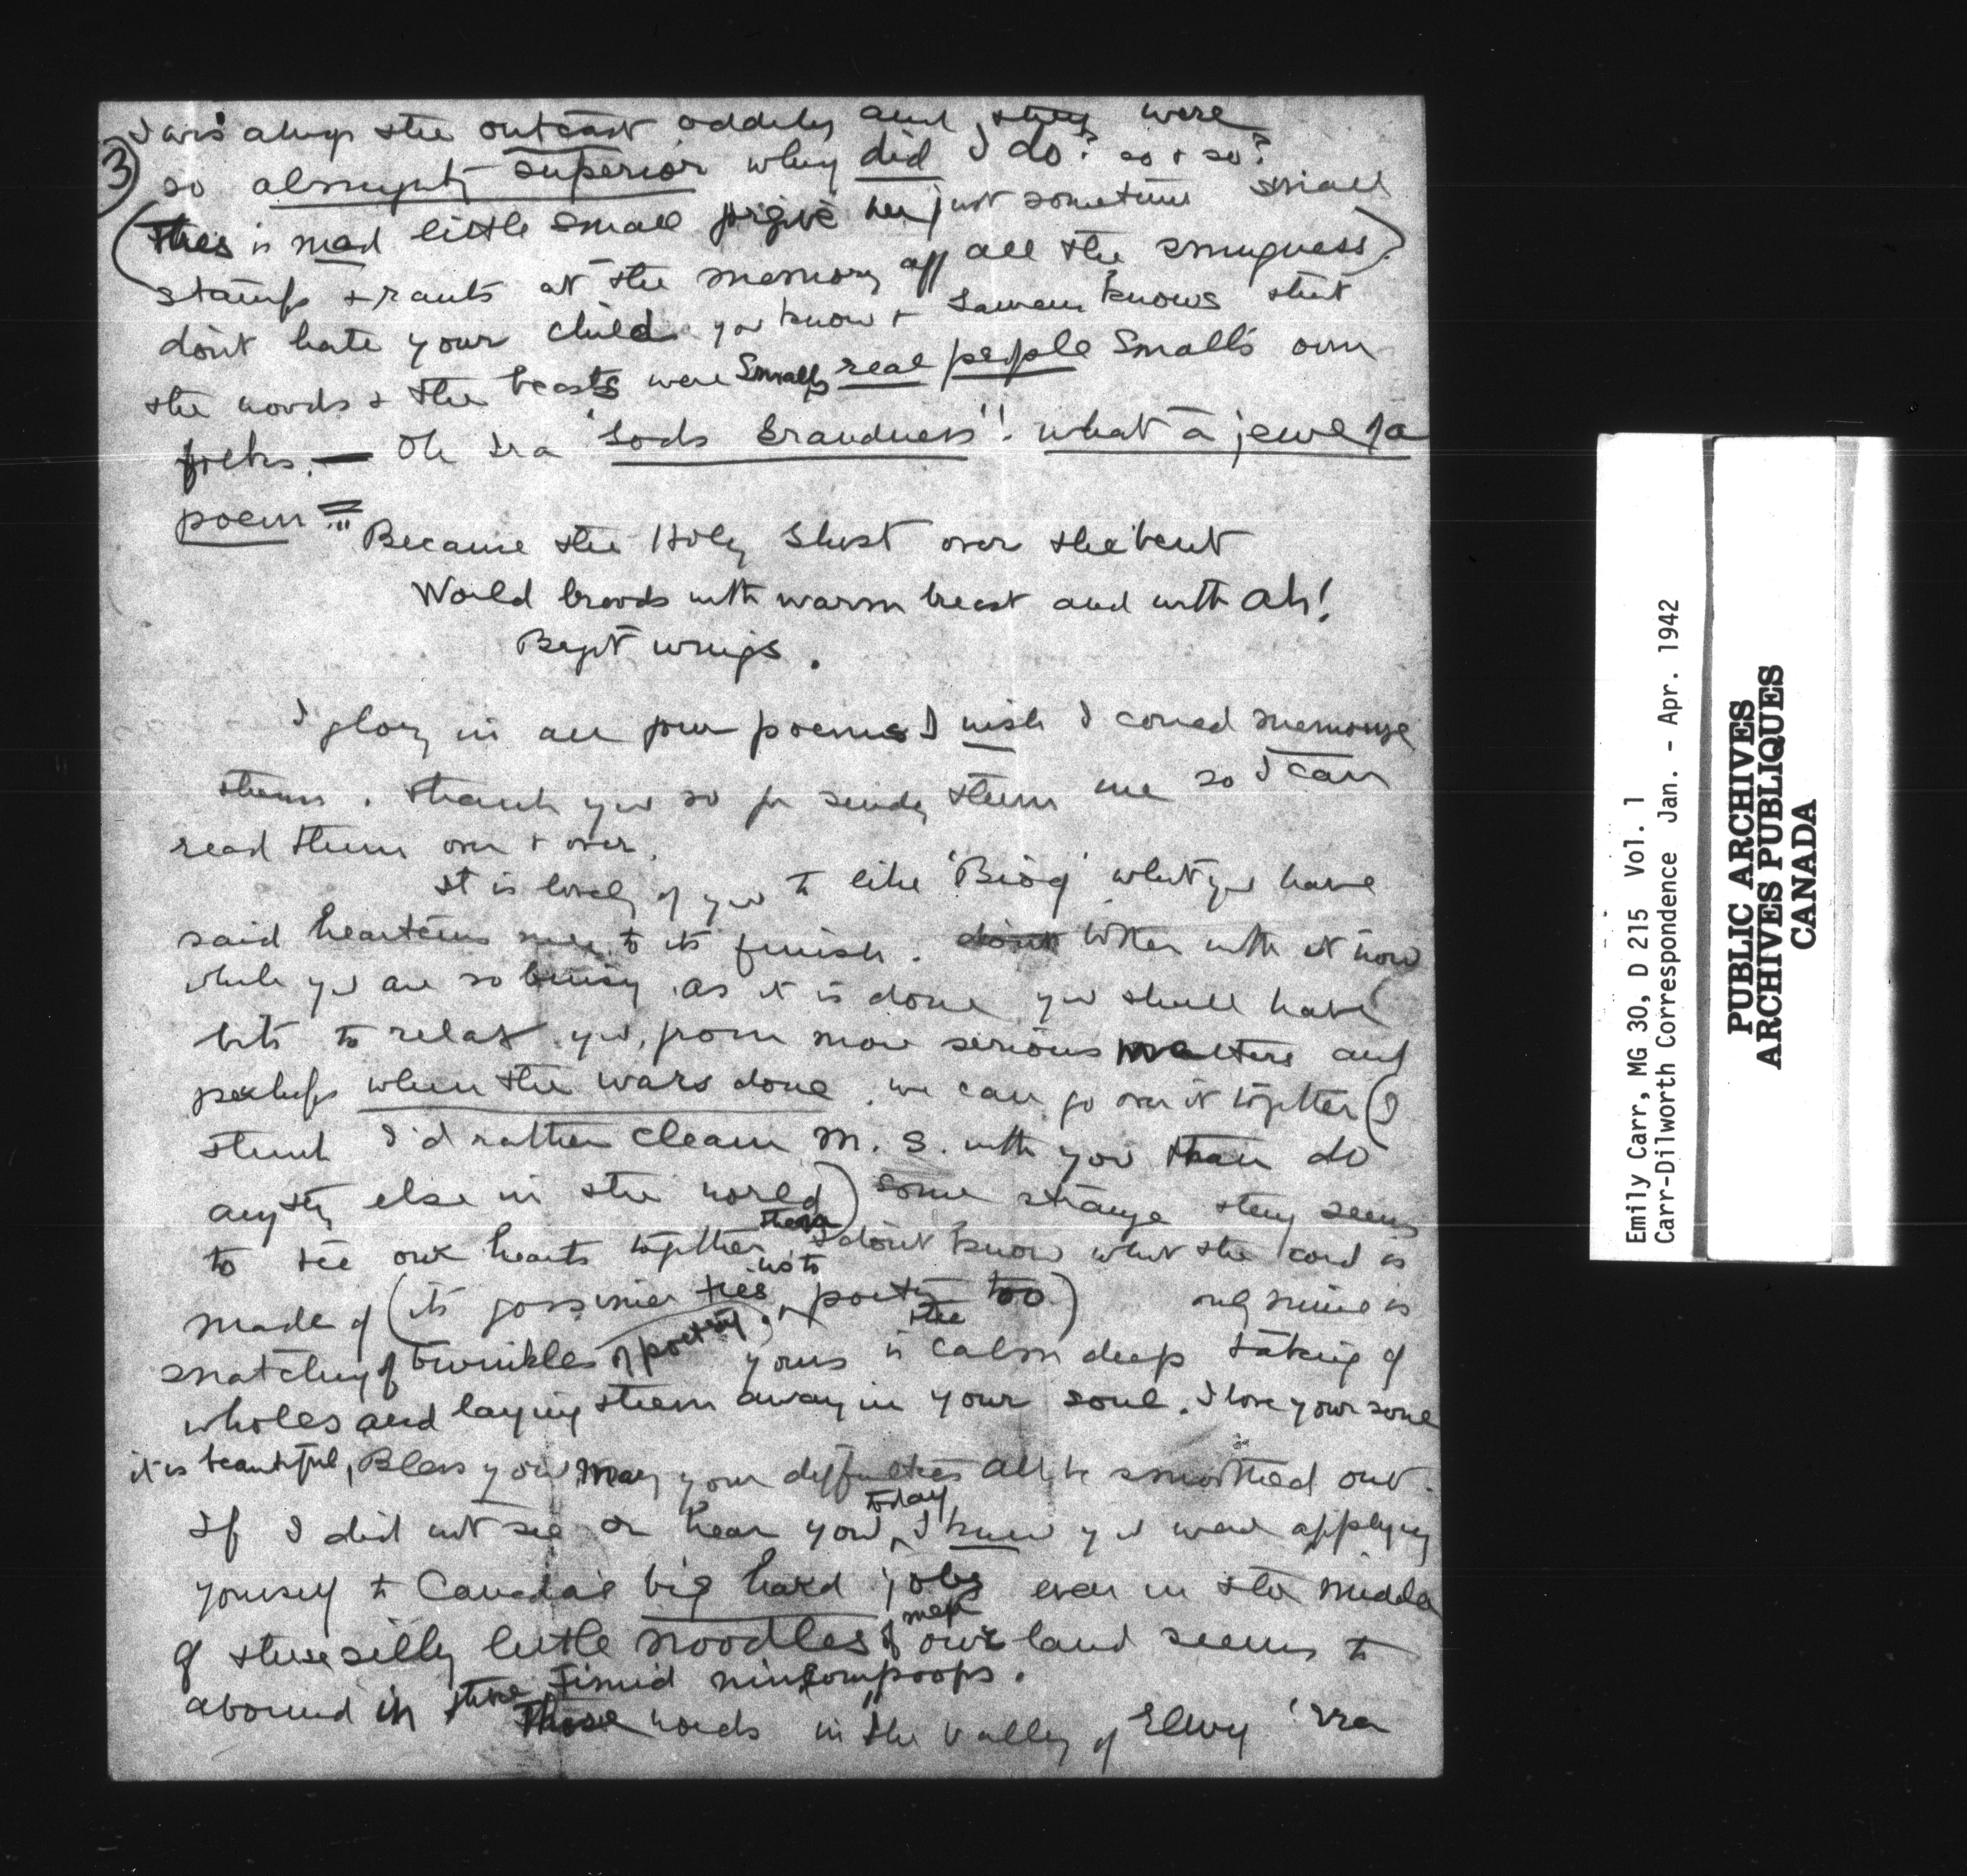 I was always the outcast oddity and they were
3
so almighty superior why did I do? so + so?
(This is mad little Small forgive her just sometime Small
stamps + rants at the memory off all the smugness)
dont hate your child you know + knows that
the woods + the beasts were Smalls real people Small's own
folks. — Oh Ira 'Gods Grandness'! what a jewel of a
poem!!
"Because the Holy Ghost over the bent
World broods with warm breast and with ah!
Bright wings.
I glory in all your poems I wish I could memorize
them. thank you so for sendg them me so I can
read them over + over.
It is lovely of you to like 'Biog' what you have
said heartens me to its finish. dont bother with it now
while you are so busy. as it is done you shall have
bits to relax you, from more serious matters and
perhaps when the wars done. we can go over it together (I
think I'd rather clean M.S. with you than do
anythg else in the world) some strange thing seems
to tie our hearts together there I dont know what the cord is
made of (its gossimer ties, poetry too) only mine is
snatching of twinkles of poetry. yours is the calm deep taking of
wholes and laying them away in your soul. I love your soul
it is beautiful, Bless you May your difficulties all be smoothed out.
If I did not see or hear you today, I knew you were applying
yourself to Canada's big hard jobs even in the middle
of these silly little noodles of men our land seems to
abound in these timid ninkompoops.
Those words in "the Valley of Elwy 'Ira
Emily Carr, MG 30, D 215 Vol. 1
Carr-Dilworth Correspondence Jan. - Apr. 1942
PUBLIC ARCHIVES
ARCHIVES PUBLIQUES
CANADA